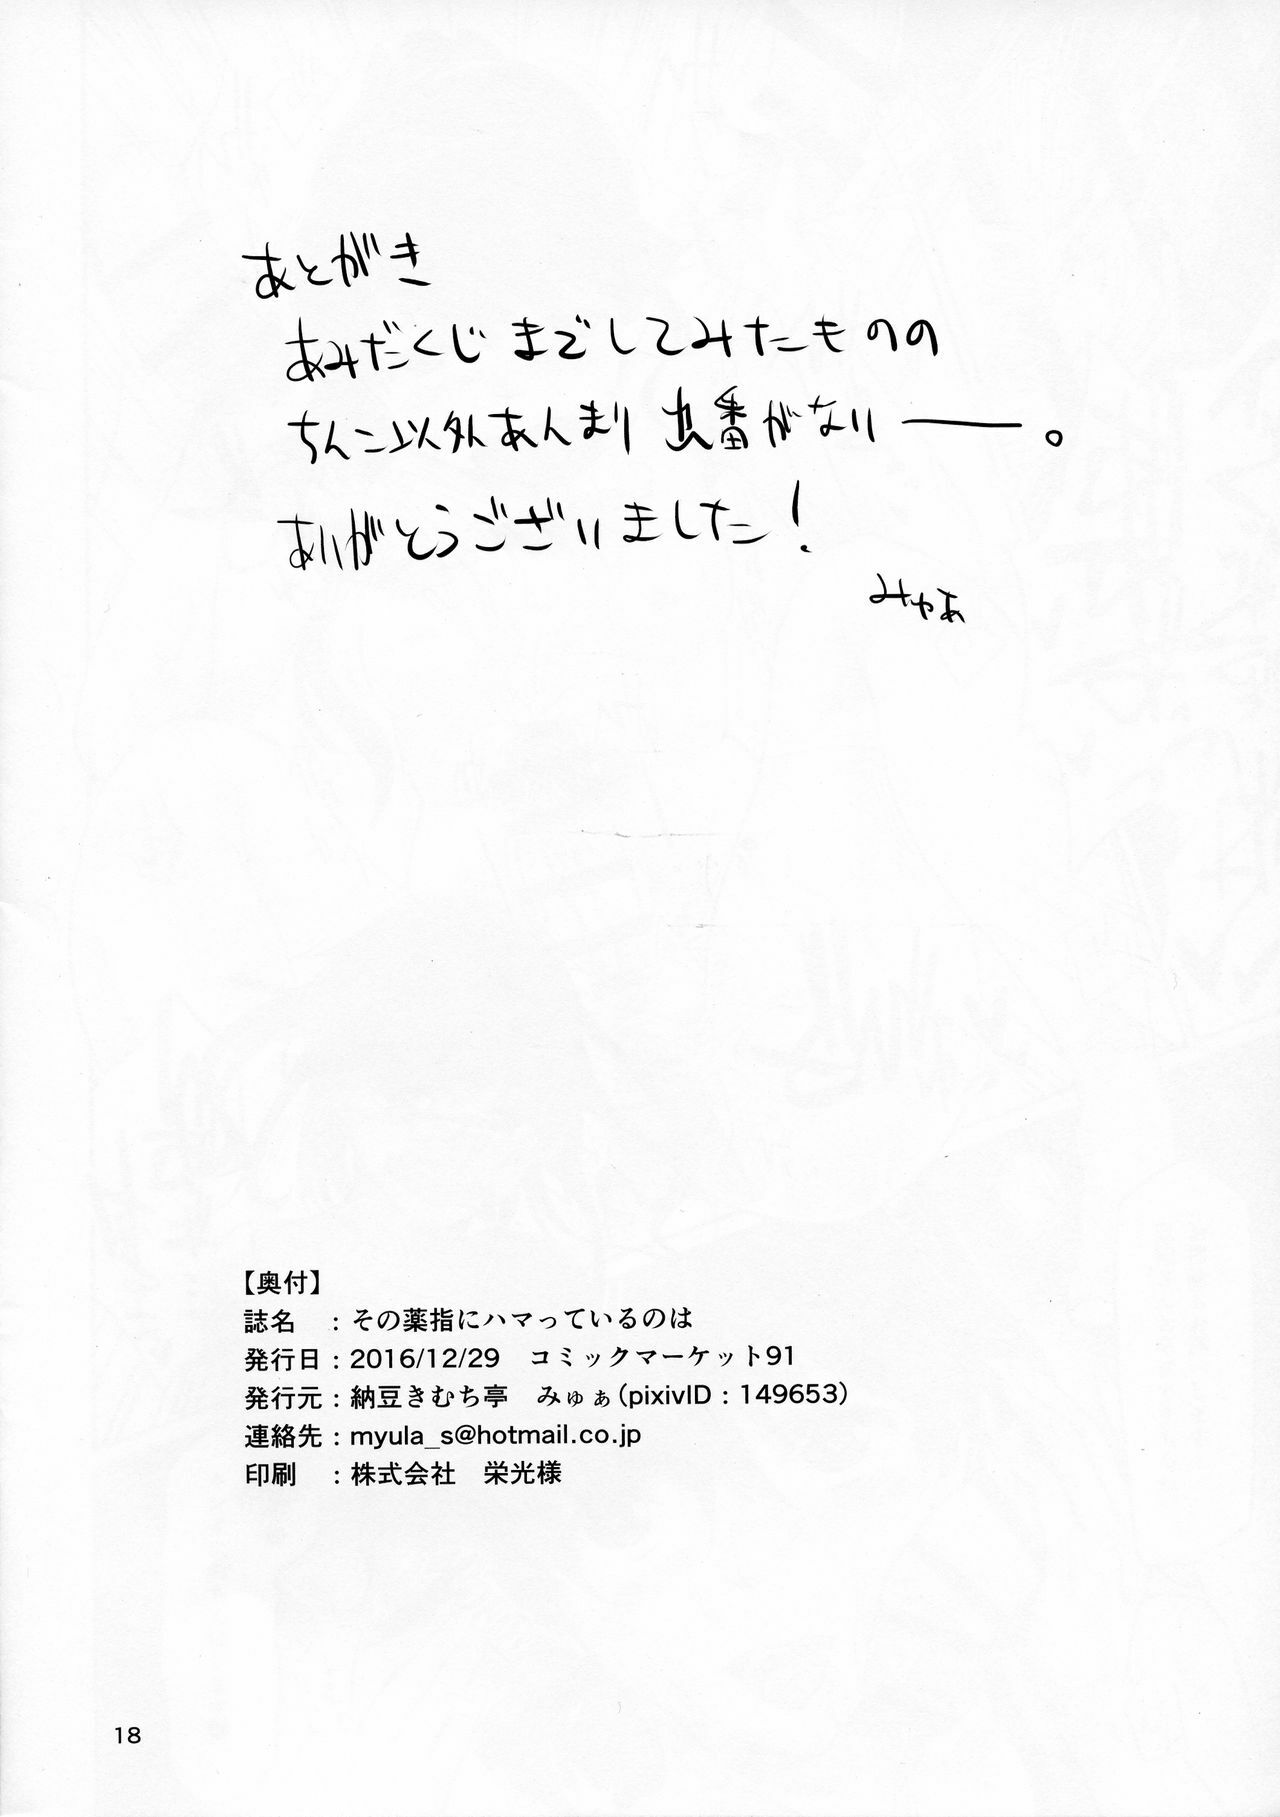 あとがき
あみだくじまでしてみたものの
ちんこ以外あんまり出番がないー。
ありがとうございました!
みゅあ
【奥付】
誌名 : その薬指にハマっているのは
発行日 : 2016/12/29 コミックマーケット91
発行元 : 納豆きむち亭 みゅぁ(pixivID : 149653)
連絡先 : myula_s@hotmail.co.jp
印刷 : 株式会社 栄光様
18